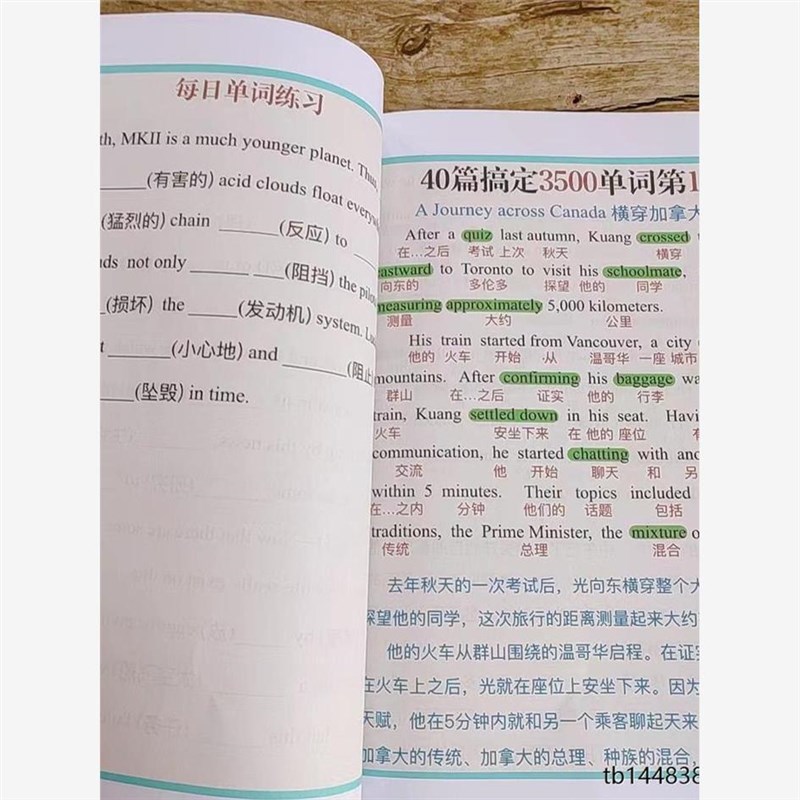 每日单词练习
th, MKII is a much younger planet.
(有害的) acid clouds float
(猛烈的) chain ______ (反应) to
not only ______ ______ (阻挡) the
(损坏) the _____ (发动机) system.
______ (小心地) and ______ (阻止
(坠毁) in time.
40篇搞定3500单词第1
A Journey across Canada 横穿加拿大
After a quiz last autumn, Kuang crossed
在…之后 考试 上次 秋天 横穿
eastward to Toronto to visit his schoolmate.
向东的 多伦多 探望 他的 同学
measuring approximately 5,000 kilometers.
测量 大约 公里
His train started from Vancouver, a city
他的 火车 开始 从 温哥华 一座 城市
mountains. After confirming his baggage
群山 在…之后 证实 他的 行李
train, Kuang settled down in his seat.
火车 安坐下来 在 他的 座位
communication, he started chatting with
交流 他 开始 聊天 和 另
within 5 minutes. Their topics included
在…之内 分钟 他们的 话题 包括
traditions, the Prime Minister, the mixture
传统 总理 混合
去年秋天的一次考试后，光向东横穿整个
探望他的同学，这次旅行的距离测量起来大约
他的火车从群山围绕的温哥华启程。在证
在火车上之后，光就在座位上安坐下来。因为
天赋，他在5分钟内就和另一个乘客聊起天来
加拿大的传统、加拿大的总理、种族的混合，
tb144838